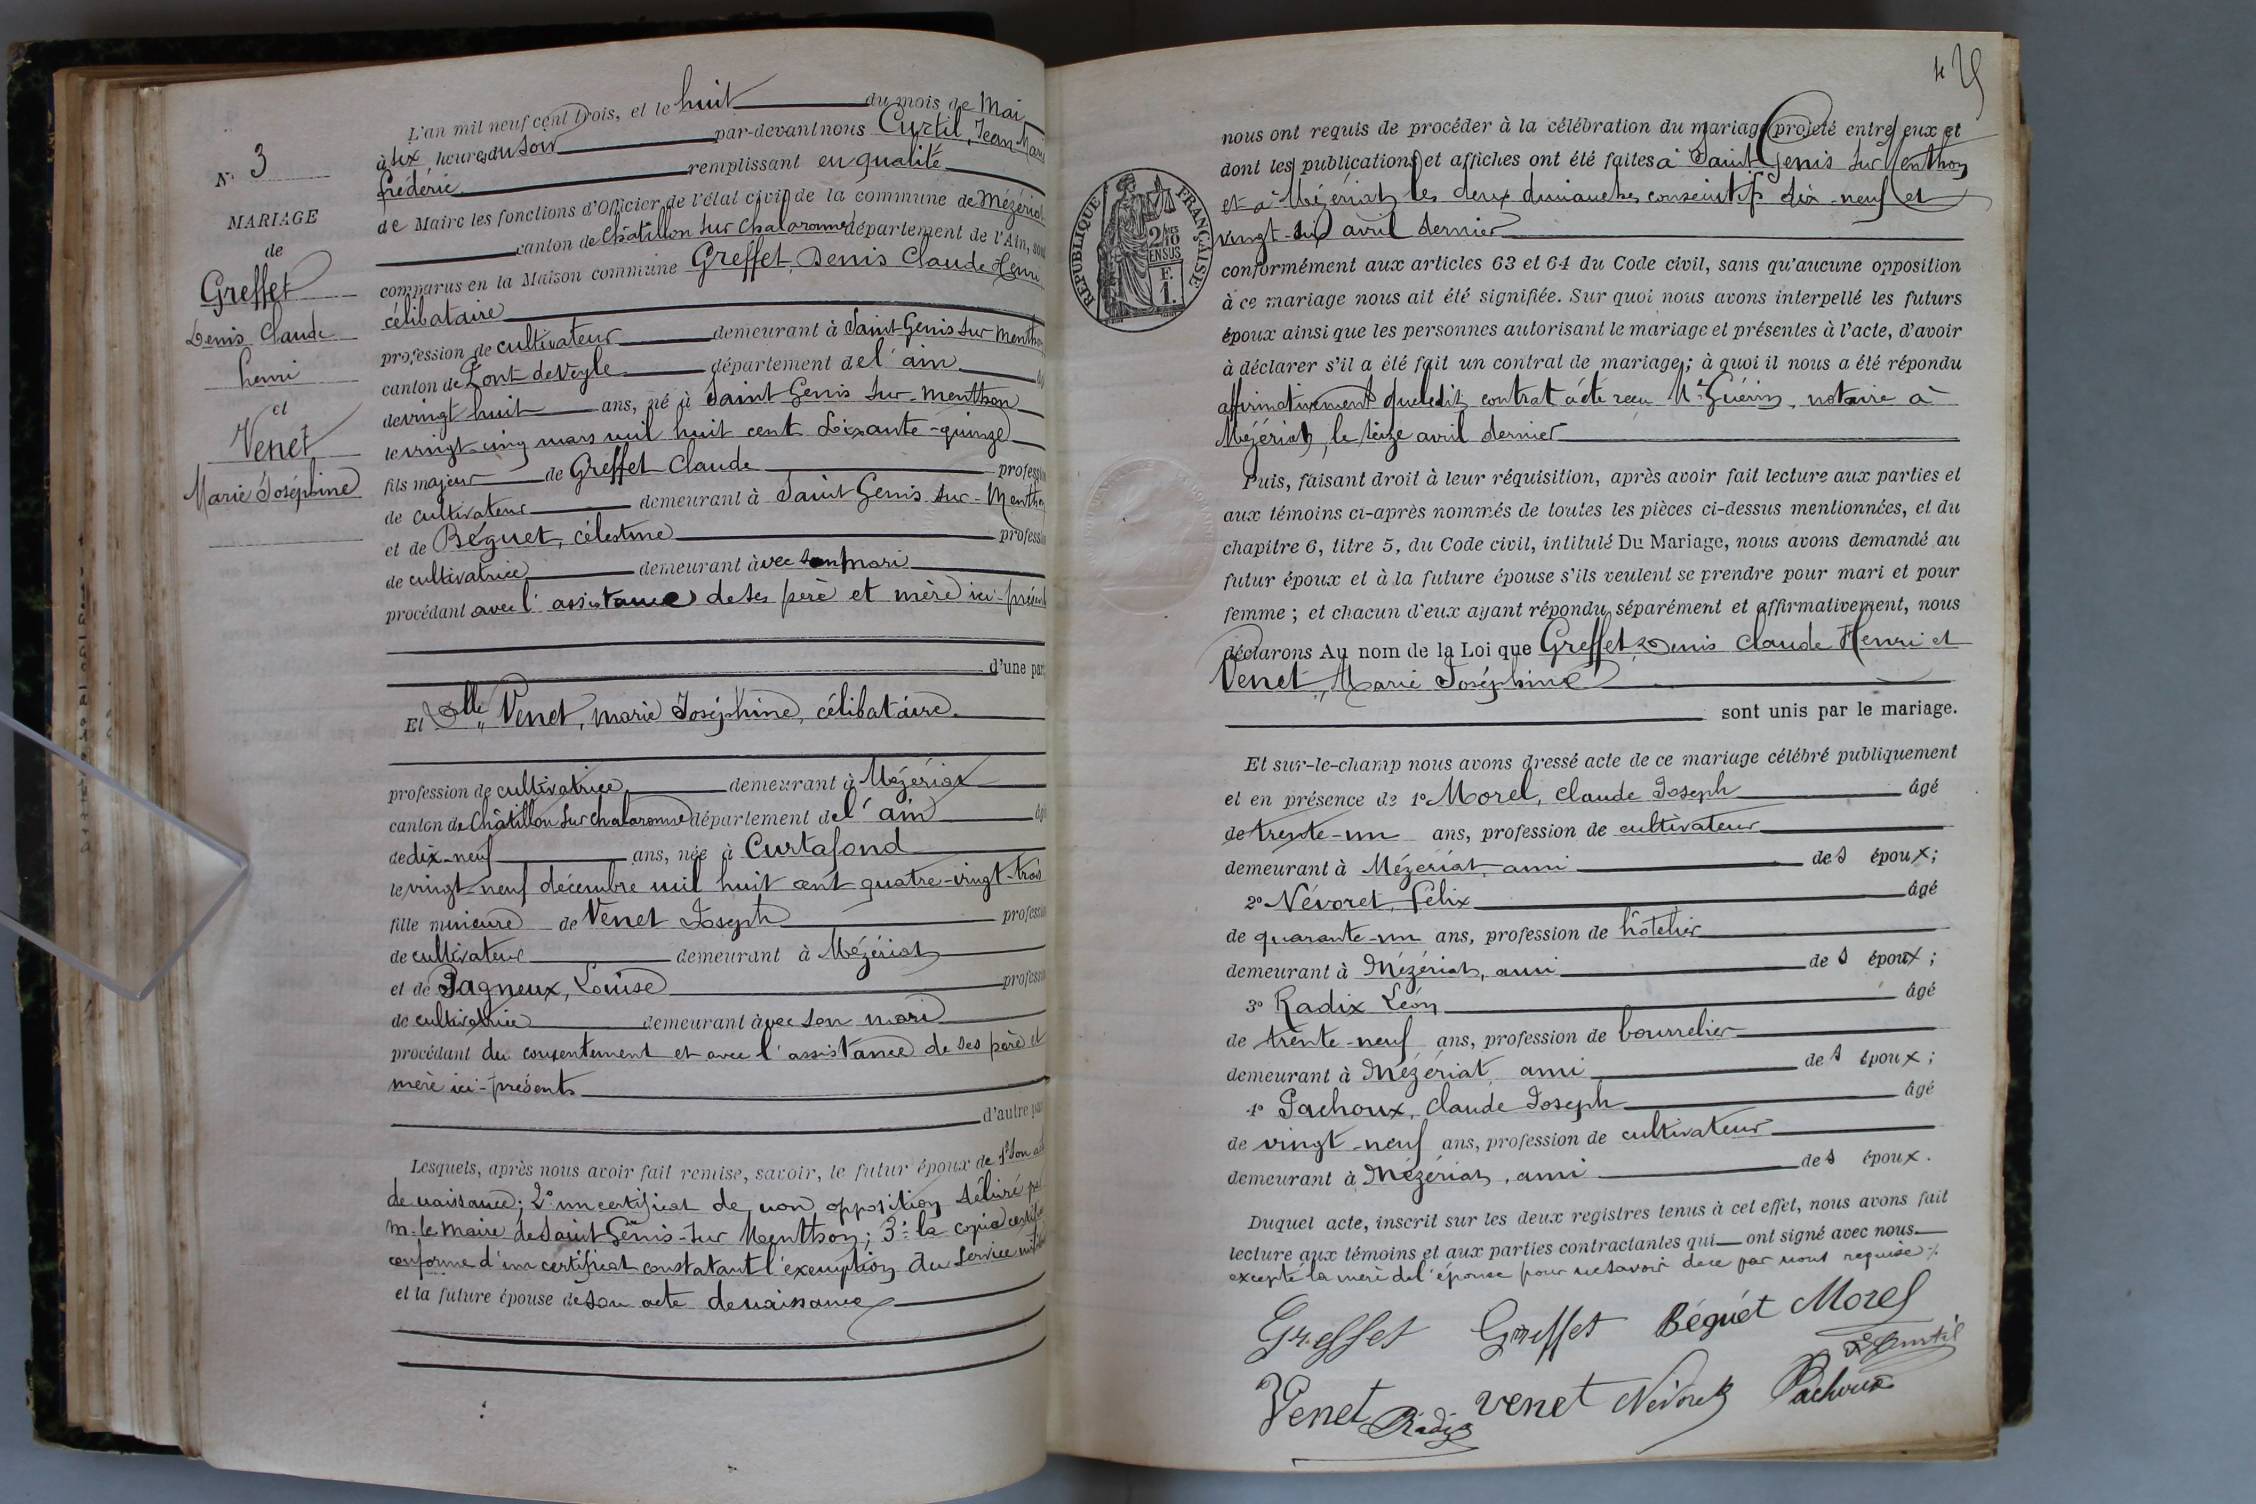 N° 3
MARIAGE
de
Greffet
Denis Claude
henri
et
Venet
Marie Joséphine
L'an mil neuf cent trois, et le huit du mois de Mai
à six heures du soir par-devant nous Curtil, Jean Marie
frédéric remplissant en qualité
de Maire les fonctions d'Officier de l'état civil de la commune de Mézériat
canton de Châtillon sur Chalaronne département de l'Ain, sont
comparus en la Maison commune Greffet, Denis Claude Henri
célibataire
profession de cultivateur demeurant à Saint Genis sur Menthon
canton de Pont de Veyle département de l'ain
de vingt huit ans, né à Saint Genis sur-menthon
le vingt cinq mars mil huit cent soixante-quinze
fils majeur de Greffet Claude profession
de cultivateur demeurant à Saint Genis sur-Menthon
et de Béguet, célestine profession
de cultivatrice demeurant avec son mari
procédant avec l'assistance de ses père et mère ici-présents
d'une part
Et Dlle Venet, marie Joséphine, célibataire
profession de cultivatrice demeurant à Mézériat
canton de Châtillon sur chalaronne département de l'ain
de dix-neuf ans, née à Curtafond
le vingt-neuf décembre mil huit cent quatre-vingt-trois
fille mineure de Venet Joseph profession
de cultivateur demeurant à Mézériat
et de Pagneux, Louise profession
de cultivatrice demeurant avec son mari
procédant du consentement et avec l'assistance de ses père et
mère ici-présents
d'autre part
Lesquels, après nous avoir fait remise, savoir, le futur époux de 1° son acte
de naissance; 2° un certificat de non opposition délivré par
m. le maire de Saint Genis-sur Menthon; 3° la copie certifiée
conforme d'un certificat constatant l'exemption du service militaire
et la future épouse de son acte de naissance
nous ont requis de procéder à la célébration du mariage projeté entre eux et
dont les publications et affiches ont été faites à Saint Genis sur Menthon
et à Mézériat les deux dimanches consécutifs dix-neuf et
vingt-six avril dernier
RÉPUBLIQUE FRANÇAISE
2/10
EN SUS
F.
1.
conformément aux articles 63 et 64 du Code civil, sans qu'aucune opposition
à ce mariage nous ait été signifiée. Sur quoi nous avons interpellé les futurs
époux ainsi que les personnes autorisant le mariage et présentes à l'acte, d'avoir
à déclarer s'il a été fait un contrat de mariage; à quoi il nous a été répondu
affirmativement que ledit contrat a été reçu Me Guérin, notaire à
Mézériat, le seize avril dernier
Puis, faisant droit à leur réquisition, après avoir fait lecture aux parties et
aux témoins ci-après nommés de toutes les pièces ci-dessus mentionnées, et du
chapitre 6, titre 5, du Code civil, intitulé Du Mariage, nous avons demandé au
futur époux et à la future épouse s'ils veulent se prendre pour mari et pour
femme; et chacun d'eux ayant répondu séparément et affirmativement, nous
déclarons Au nom de la Loi que Greffet, Denis Claude Henri et
Venet, Marie Joséphine
sont unis par le mariage.
Et sur-le-champ nous avons dressé acte de ce mariage célébré publiquement
et en présence de 1° Morel, Claude Joseph âgé
de trente-un ans, profession de cultivateur
demeurant à Mézériat, ami des époux;
2° Névoret, félix âgé
de quarante-un ans, profession de hôtelier
demeurant à Mézériat, ami des époux;
3° Radix Léon âgé
de trente-neuf ans, profession de bourrelier
demeurant à Mézériat, ami des époux;
4° Pachoux, Claude Joseph âgé
de vingt-neuf ans, profession de cultivateur
demeurant à Mézériat, ami des époux.
Duquel acte, inscrit sur les deux registres tenus à cet effet, nous avons fait
lecture aux témoins et aux parties contractantes qui ont signé avec nous
excepté la mère de l'épouse pour ne savoir de ce par nous requise
Greffet Greffet Béguet Morel
Curtil
Venet Radix venet Névoret Pachoux